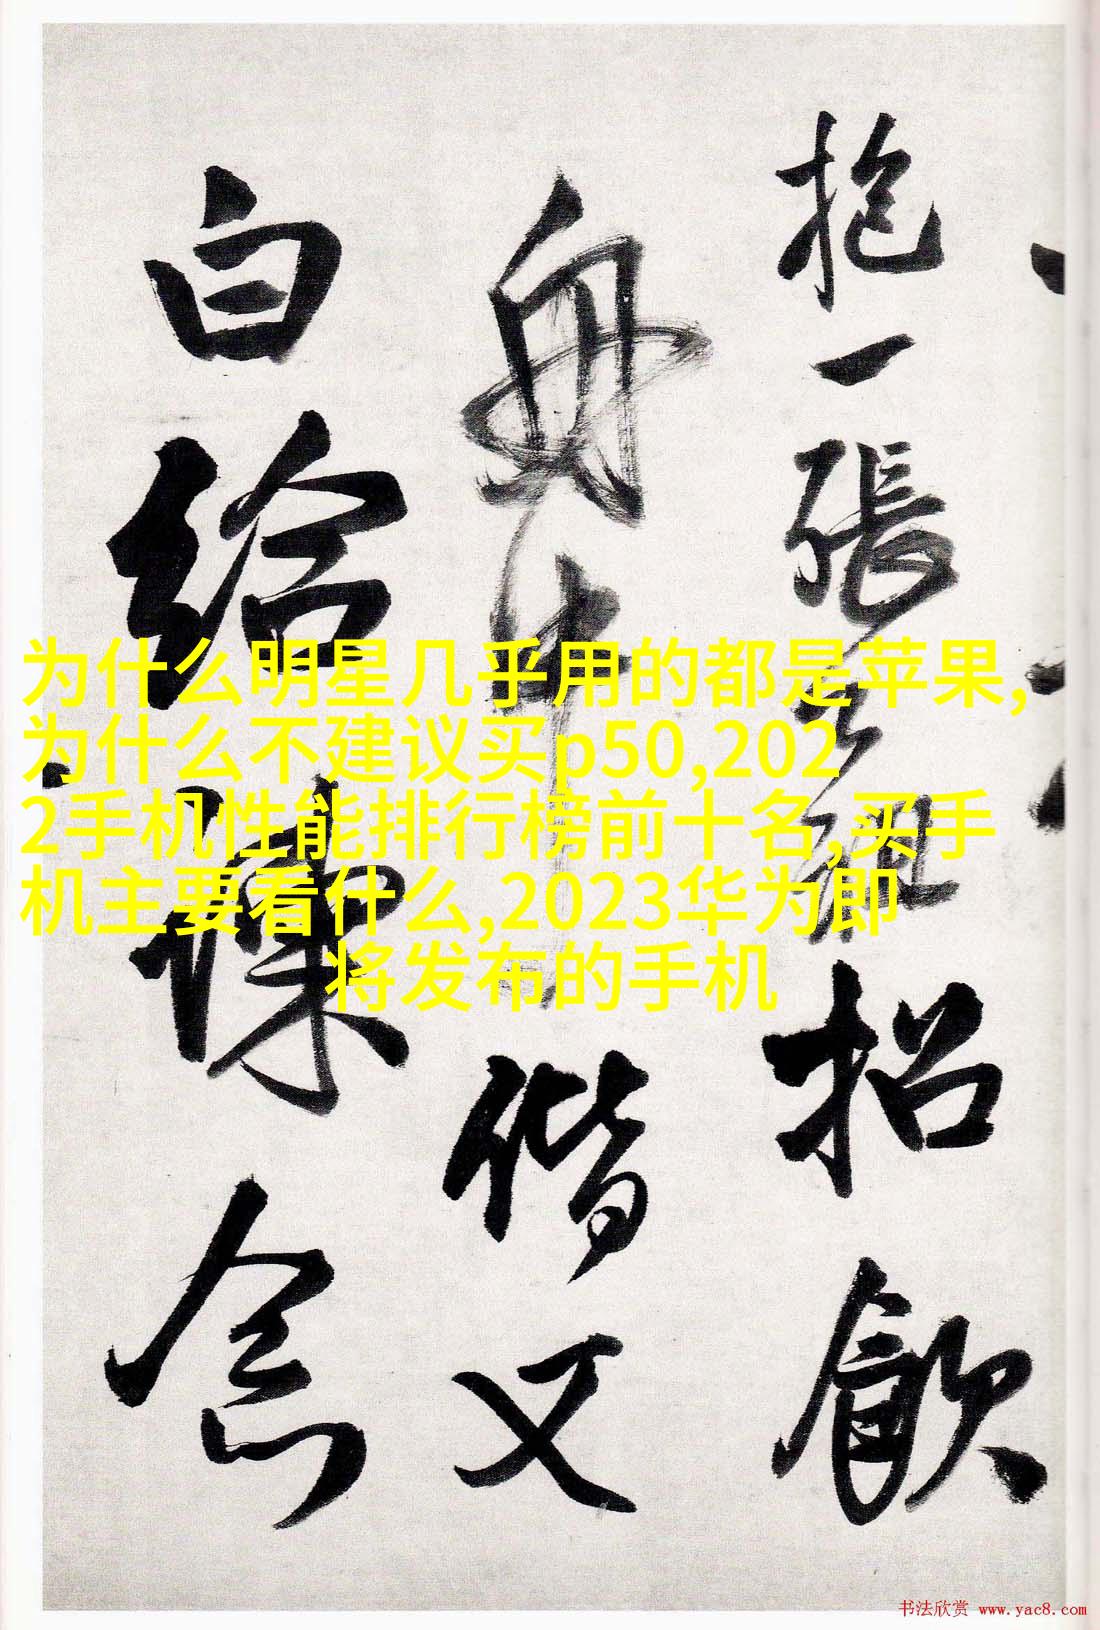 抱一張
招飲
舟中
偕又
白給諫
念
为什么明星几乎用的都是苹果,
为什么不建议买p50,202
2手机性能排行榜前十名,买手
机主要看什么,2023华为即
将发布的手机
书法欣赏 www.yac8.com